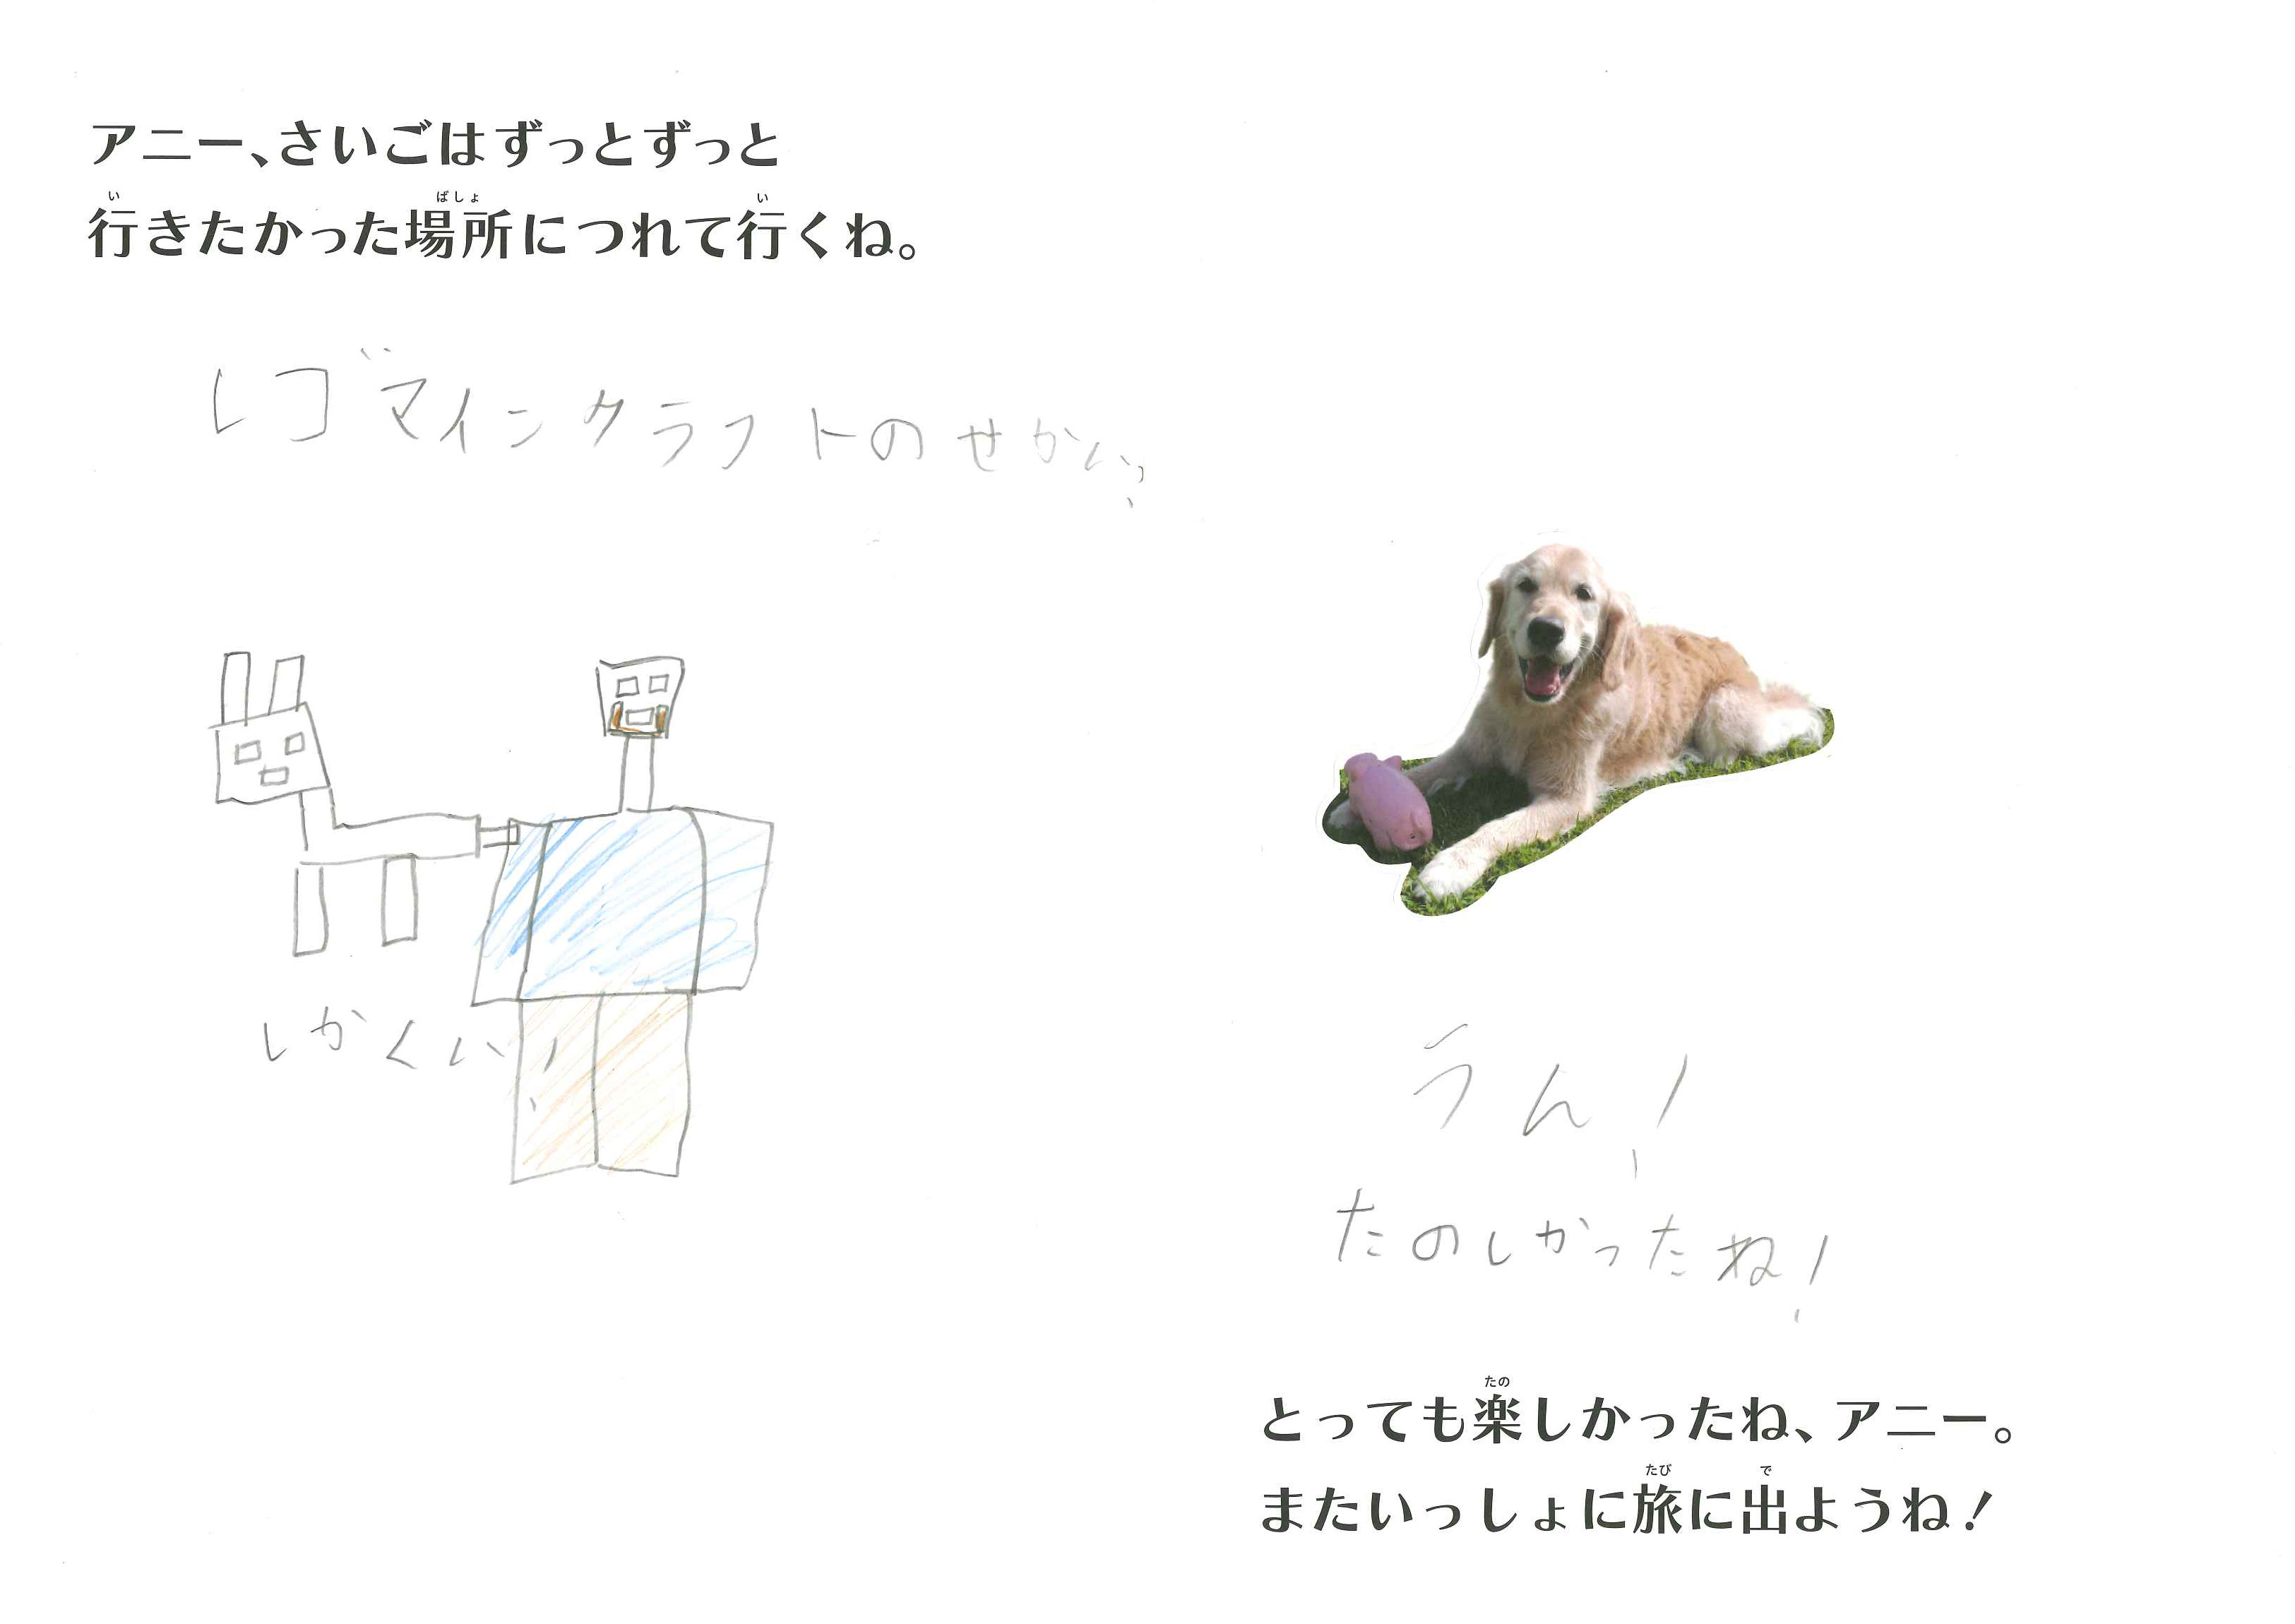 アニー、さいごはずっとずっと
行きたかった場所につれて行くね。
レゴマインクラフトのせかいっ
しかくい!
うん!
たのしかったね!
とっても楽しかったね、アニー。
またいっしょに旅に出ようね!